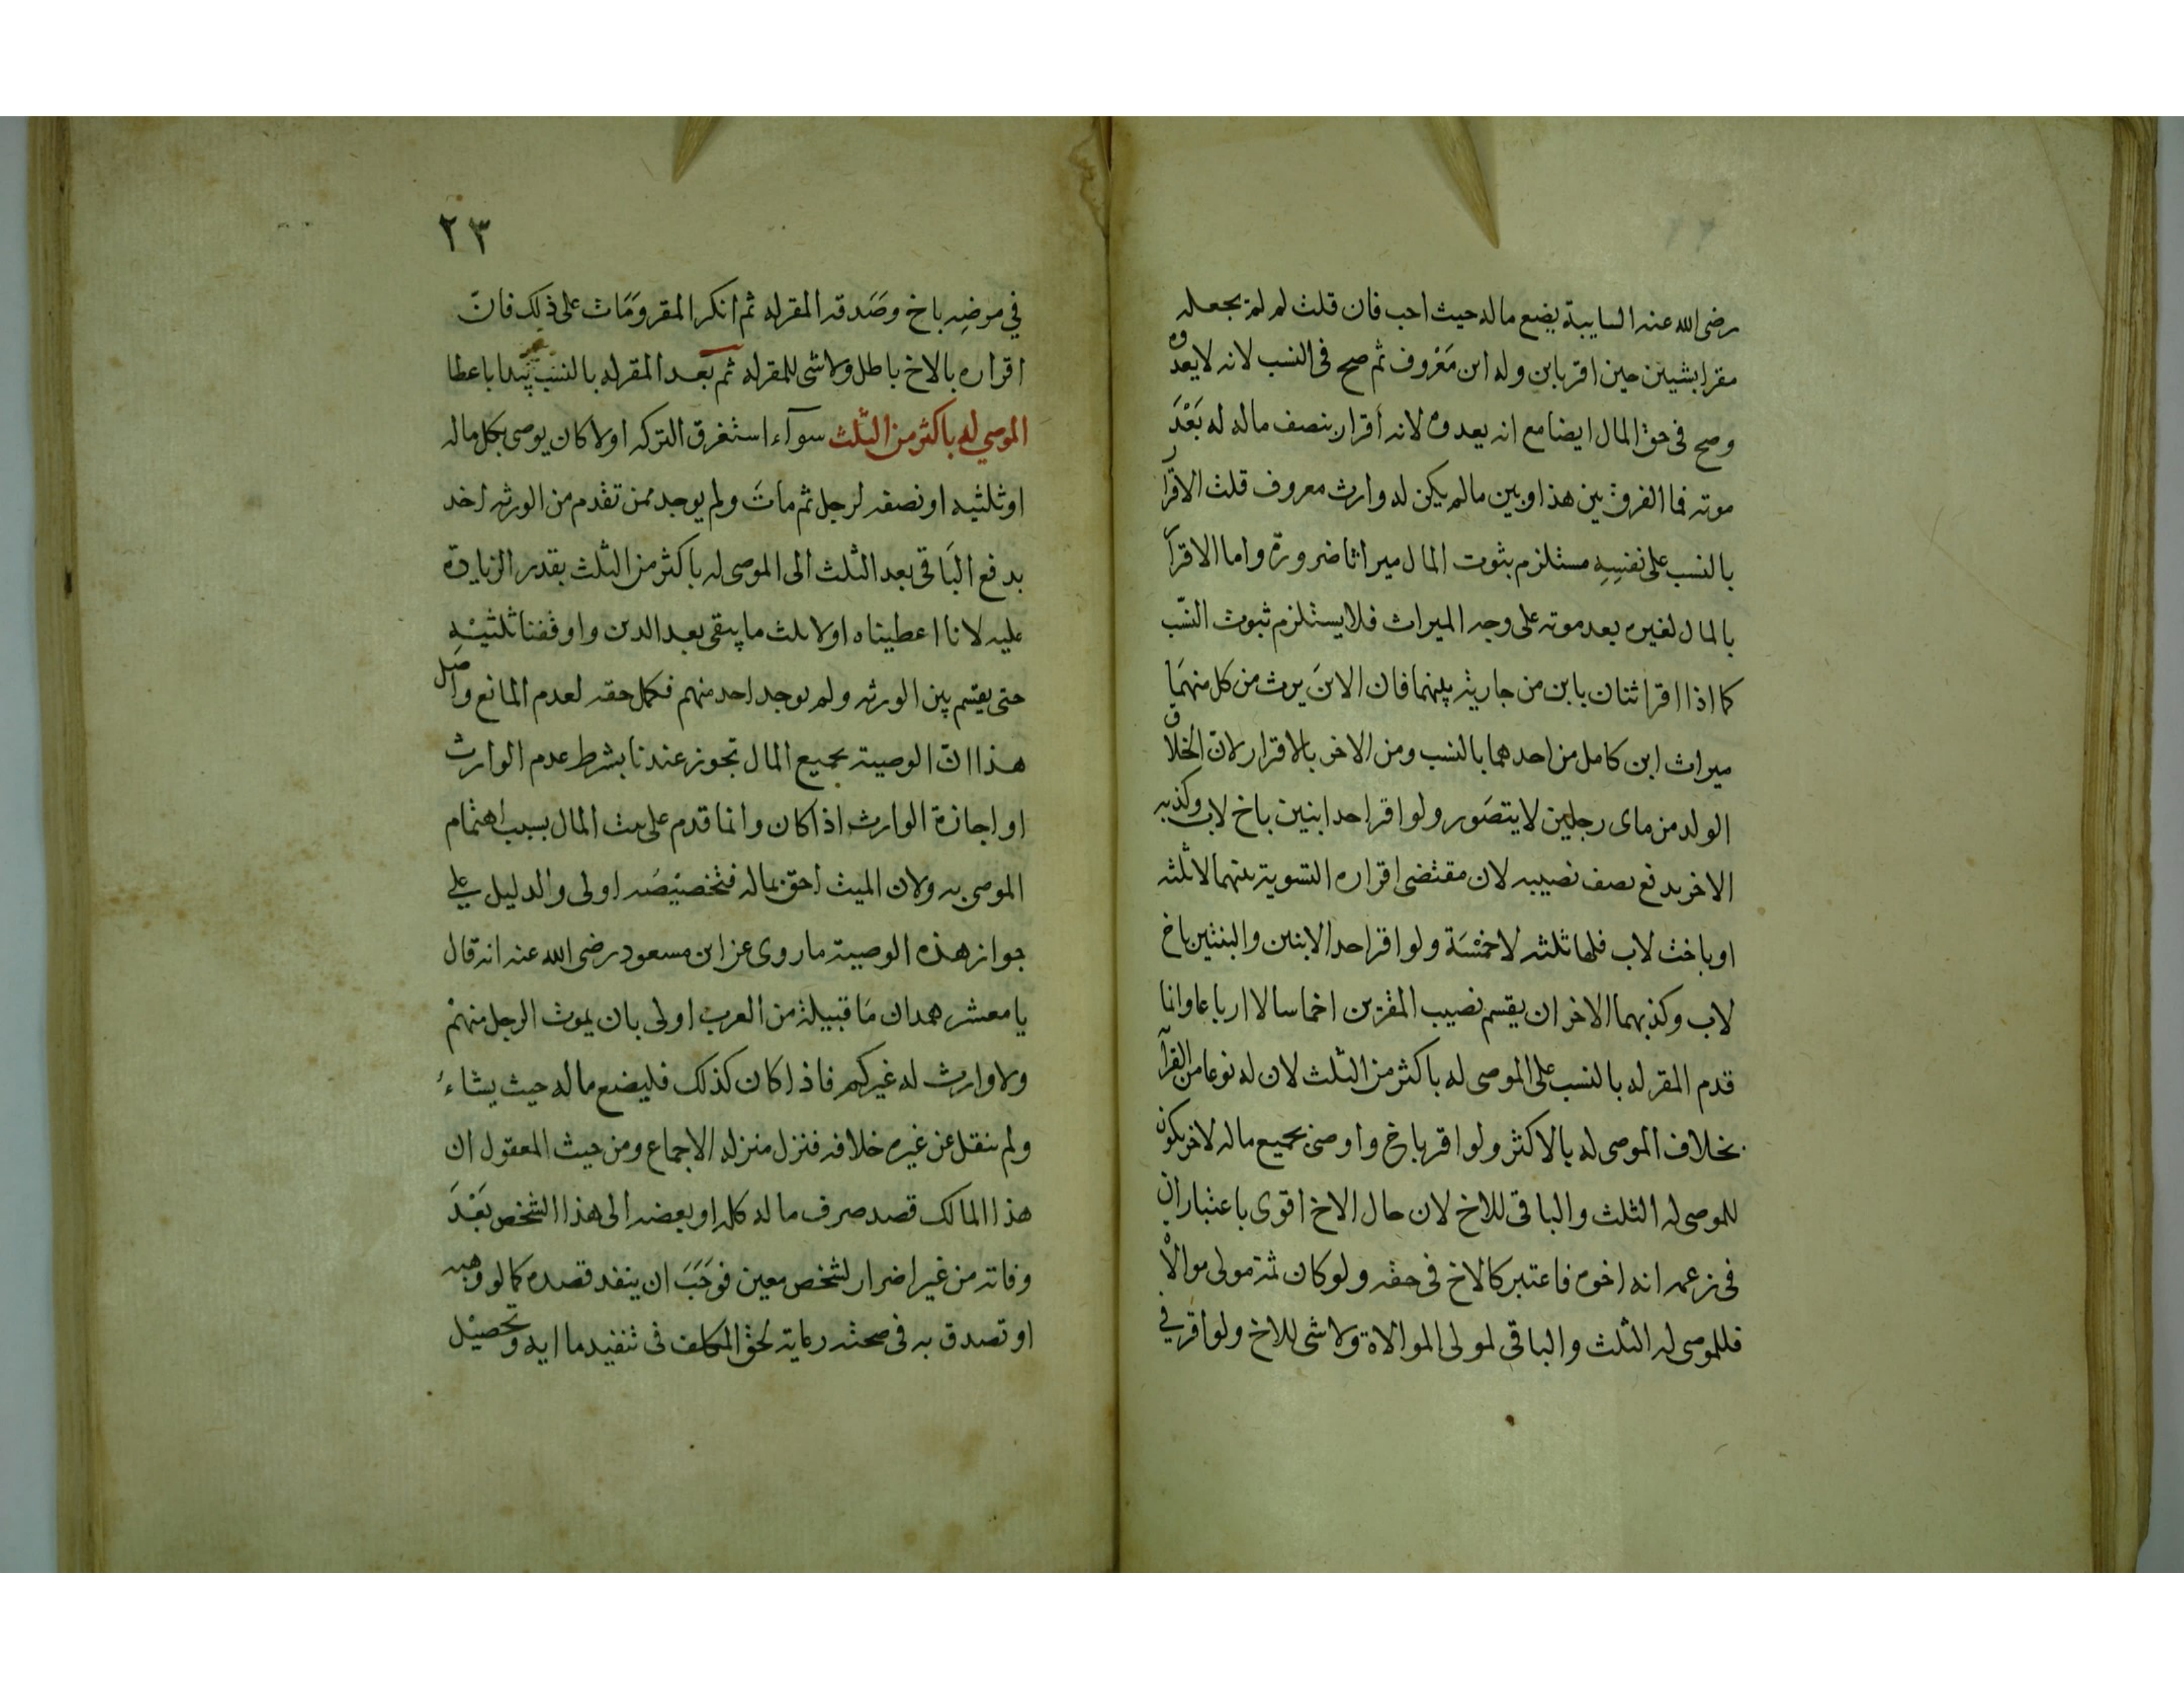 رضى الله عنه السايبة يضع ماله حيث احب فان قلت لم لم يجعله
مقرا بشيئين حين اقر بابن وله ابن مَعْروف ثم صح فى النسب لانه لا يعدوه
وصح فى حق المال ايضا مع انه يعدوه لانه أقرار بنصف ماله له بَعْدَ
موته فما الفرق بين هذا وبين ما لم يكن له وارث معروف قلت الاقرار
بالنسب على نفسِهِ مستلزم بثوت المال ميراثا ضرورة واما الاقرار
بالمال لغيره بعد موته على وجه الميراث فلا يستلزم ثبوت النسّب
كما اذا اقر اثنان بابن من جارية بينهما فان الابنَ يرث من كل منهمَا
ميراث ابن كامل من احدهما بالنسب ومن الاخر بالاقرار لان الخلاق
الولد من ماى رجلين لا يتصَور ولو اقر احد ابنين باخ لاب وكذبه
الاخر يدفع نصف نصيبه لان مقتضى اقراره التسوية بينهما لا ثلثه
او باخت لاب فلها ثلثه لا خمْسَة ولو اقر احد الابنين والبنتين باخ
لاب وكذبهما الاخران يقسم نصيب المقرّين اخماسا لا ارباعا وانما
قدم المقر له بالنسب على الموصى له باكثر من الثلث لان له نوعا من القرآ
بخلاف الموصى له بالاكثر ولو اقر باخ واوصى بجميع ماله لاخر يكون
للموصى له الثلث والباقى للاخ لان حال الاخ اقوى باعتبار ان
فى زعمه انه اخوه فاعتبر كالاخ فى حقه ولو كان ثمة مولى موالاة
فللموصى له الثلث والباقى لمولى الموالاة ولا شى للاخ ولو اقر في
٢٣
في مرضِه باخ وصَدقه المقر له ثم انكر المقر ومَات على ذلك فان
اقراره بالاخ باطل ولا شى للمقر له ثم بَعد المقر له بالنسب يبدا باعطا
الموصي له باكثر من الثلث سوآء استغرق التركه اولا كان يوصى بكل ماله
او ثلثيه او نصفه لرجل ثم ماتَ ولم يوجد ممن تقدم من الورثه احد
يدفع البَاقى بعد الثلث الى الموصى له باكثر من الثلث بقدر الزيادة
عليه لانا اعطيناه اولا ثلث ما يبقى بعد الدين واوقفنا ثلثيْه
حتى يقسم بين الورثه ولم يوجد احد منهم فكمل حقه لعدم المانع واصَل
هذا ان الوصية بجميع المال تجوز عندنا بشرط عدم الوارث
او اجازة الوارث اذا كان وانما قدم على بيت المال بسبب اهتمام
الموصى به ولان الميت احق بماله فتخصيْصَه اولى والدليل على
جواز هذه الوصية ما روى عن ابن مسعود رضى الله عنه انه قال
يا معشر همدان مَا قبيلة من العرب اولى بان يموت الرجل منهمْ
ولا وارث له غيركم فاذا كان كذلك فليضع ماله حيث يشاءُ
ولم ينقل عن غيره خلافه فنزل منزله الاجماع ومن حيث المعقول ان
هذا المالك قصد صرف ماله كله او بعضه الى هذا الشخص بَعْدَ
وفاته من غير اضرار لشخص معين فوجَبَ ان ينفد قصده كما لو وهبه
او تصدق به فى صحته رعاية لحق المكلف فى تنفيد ما ايده وتحصيْل